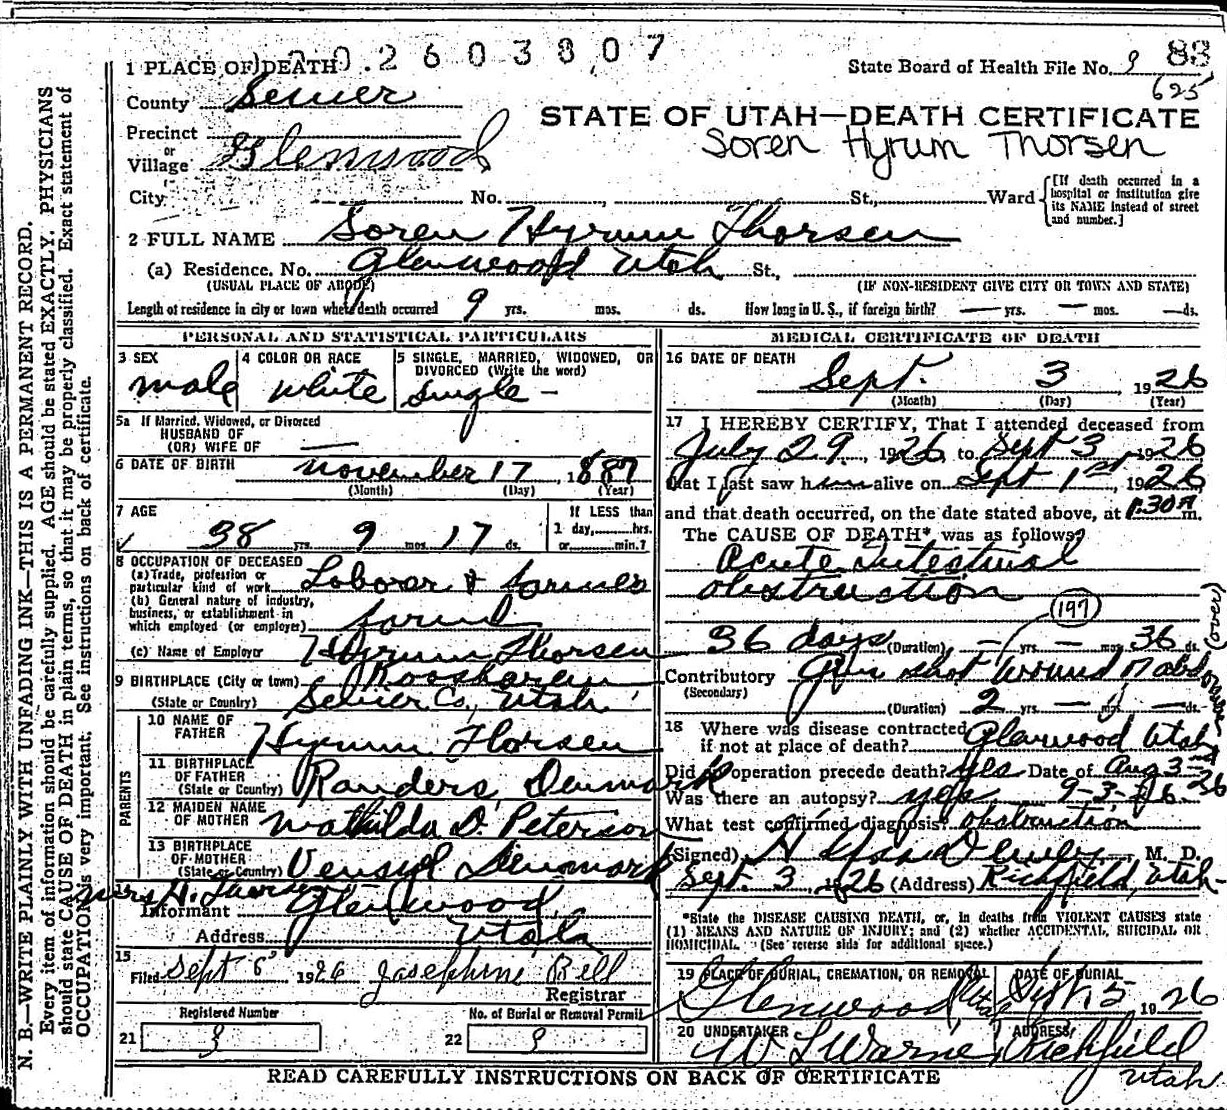 2603807
1 PLACE OF DEATH
State Board of Health File No. 9 83
625
County Sevier
STATE OF UTAH—DEATH CERTIFICATE
Soren Hyrum Thorsen
Precinct
or
Village Glenwood
City No. St., Ward
[If death occurred in a hospital or institution give its NAME instead of street and number.]
2 FULL NAME Soren Hyrum Thorsen
(a) Residence. No. Glenwood Utah St.,
(USUAL PLACE OF ABODE) (IF NON-RESIDENT GIVE CITY OR TOWN AND STATE)
Length of residence in city or town where death occurred 9 yrs. mos. ds. How long in U. S., if foreign birth? — yrs. — mos. — ds.
PERSONAL AND STATISTICAL PARTICULARS
3 SEX
male
4 COLOR OR RACE
white
5 SINGLE, MARRIED, WIDOWED, OR DIVORCED (Write the word)
single -
5a If Married, Widowed, or Divorced
HUSBAND OF
(OR) WIFE OF —
6 DATE OF BIRTH november 17 1887
(Month) (Day) (Year)
7 AGE
38 yrs. 9 mos. 17 ds.
If LESS than
1 day, hrs.
or min.?
8 OCCUPATION OF DECEASED
(a) Trade, profession or
particular kind of work Laborer & farmer
(b) General nature of industry,
business, or establishment in
which employed (or employer) farm
(c) Name of Employer Hyrum Thorsen
9 BIRTHPLACE (City or town) Koosharem
(State or Country) Sevier Co., Utah
PARENTS
10 NAME OF
FATHER Hyrum Thorsen
11 BIRTHPLACE
OF FATHER
(State or Country) Randers, Denmark
12 MAIDEN NAME
OF MOTHER Mathilda D. Peterson
13 BIRTHPLACE
OF MOTHER
(State or Country) Denmark
Mrs H. Thorsen
Informant Glenwood
Address Utah
15
Filed Sept 6 1926 Josephine Bell
Registrar
Registered Number
21 9
No. of Burial or Removal Permit
22 9
MEDICAL CERTIFICATE OF DEATH
16 DATE OF DEATH
Sept. 3 1926
(Month) (Day) (Year)
17 I HEREBY CERTIFY, That I attended deceased from
July 29, 1926, to Sept 3, 1926
that I last saw him alive on Sept 1st, 1926
and that death occurred, on the date stated above, at 1:30 m.
The CAUSE OF DEATH* was as follows:
Acute Intestinal
obstruction
(197)
(over)
36 days (Duration) — yrs. — mos. 36 ds.
Contributory Gun shot wound of abdomen
(Secondary)
(Duration) 2 yrs. — mos. — ds.
18 Where was disease contracted
if not at place of death? Glenwood Utah
Did operation precede death? yes Date of Aug 3rd
Was there an autopsy? yes 9-3-26
What test confirmed diagnosis? obstruction
(Signed) M. D.
Sept. 3 1926 (Address) Richfield, Utah-
*State the DISEASE CAUSING DEATH, or, in deaths from VIOLENT CAUSES state
(1) MEANS AND NATURE OF INJURY; and (2) whether ACCIDENTAL, SUICIDAL OR
HOMICIDAL. (See reverse side for additional space.)
19 PLACE OF BURIAL, CREMATION, OR REMOVAL
Glenwood Utah
DATE OF BURIAL
Sept. 5 1926
20 UNDERTAKER
W L Warne
ADDRESS
Richfield
Utah
READ CAREFULLY INSTRUCTIONS ON BACK OF CERTIFICATE
N. B.—WRITE PLAINLY WITH UNFADING INK—THIS IS A PERMANENT RECORD.
Every item of information should be carefully supplied. AGE should be stated EXACTLY. PHYSICIANS
should state CAUSE OF DEATH in plain terms, so that it may be properly classified. Exact statement of
OCCUPATION is very important. See instructions on back of certificate.